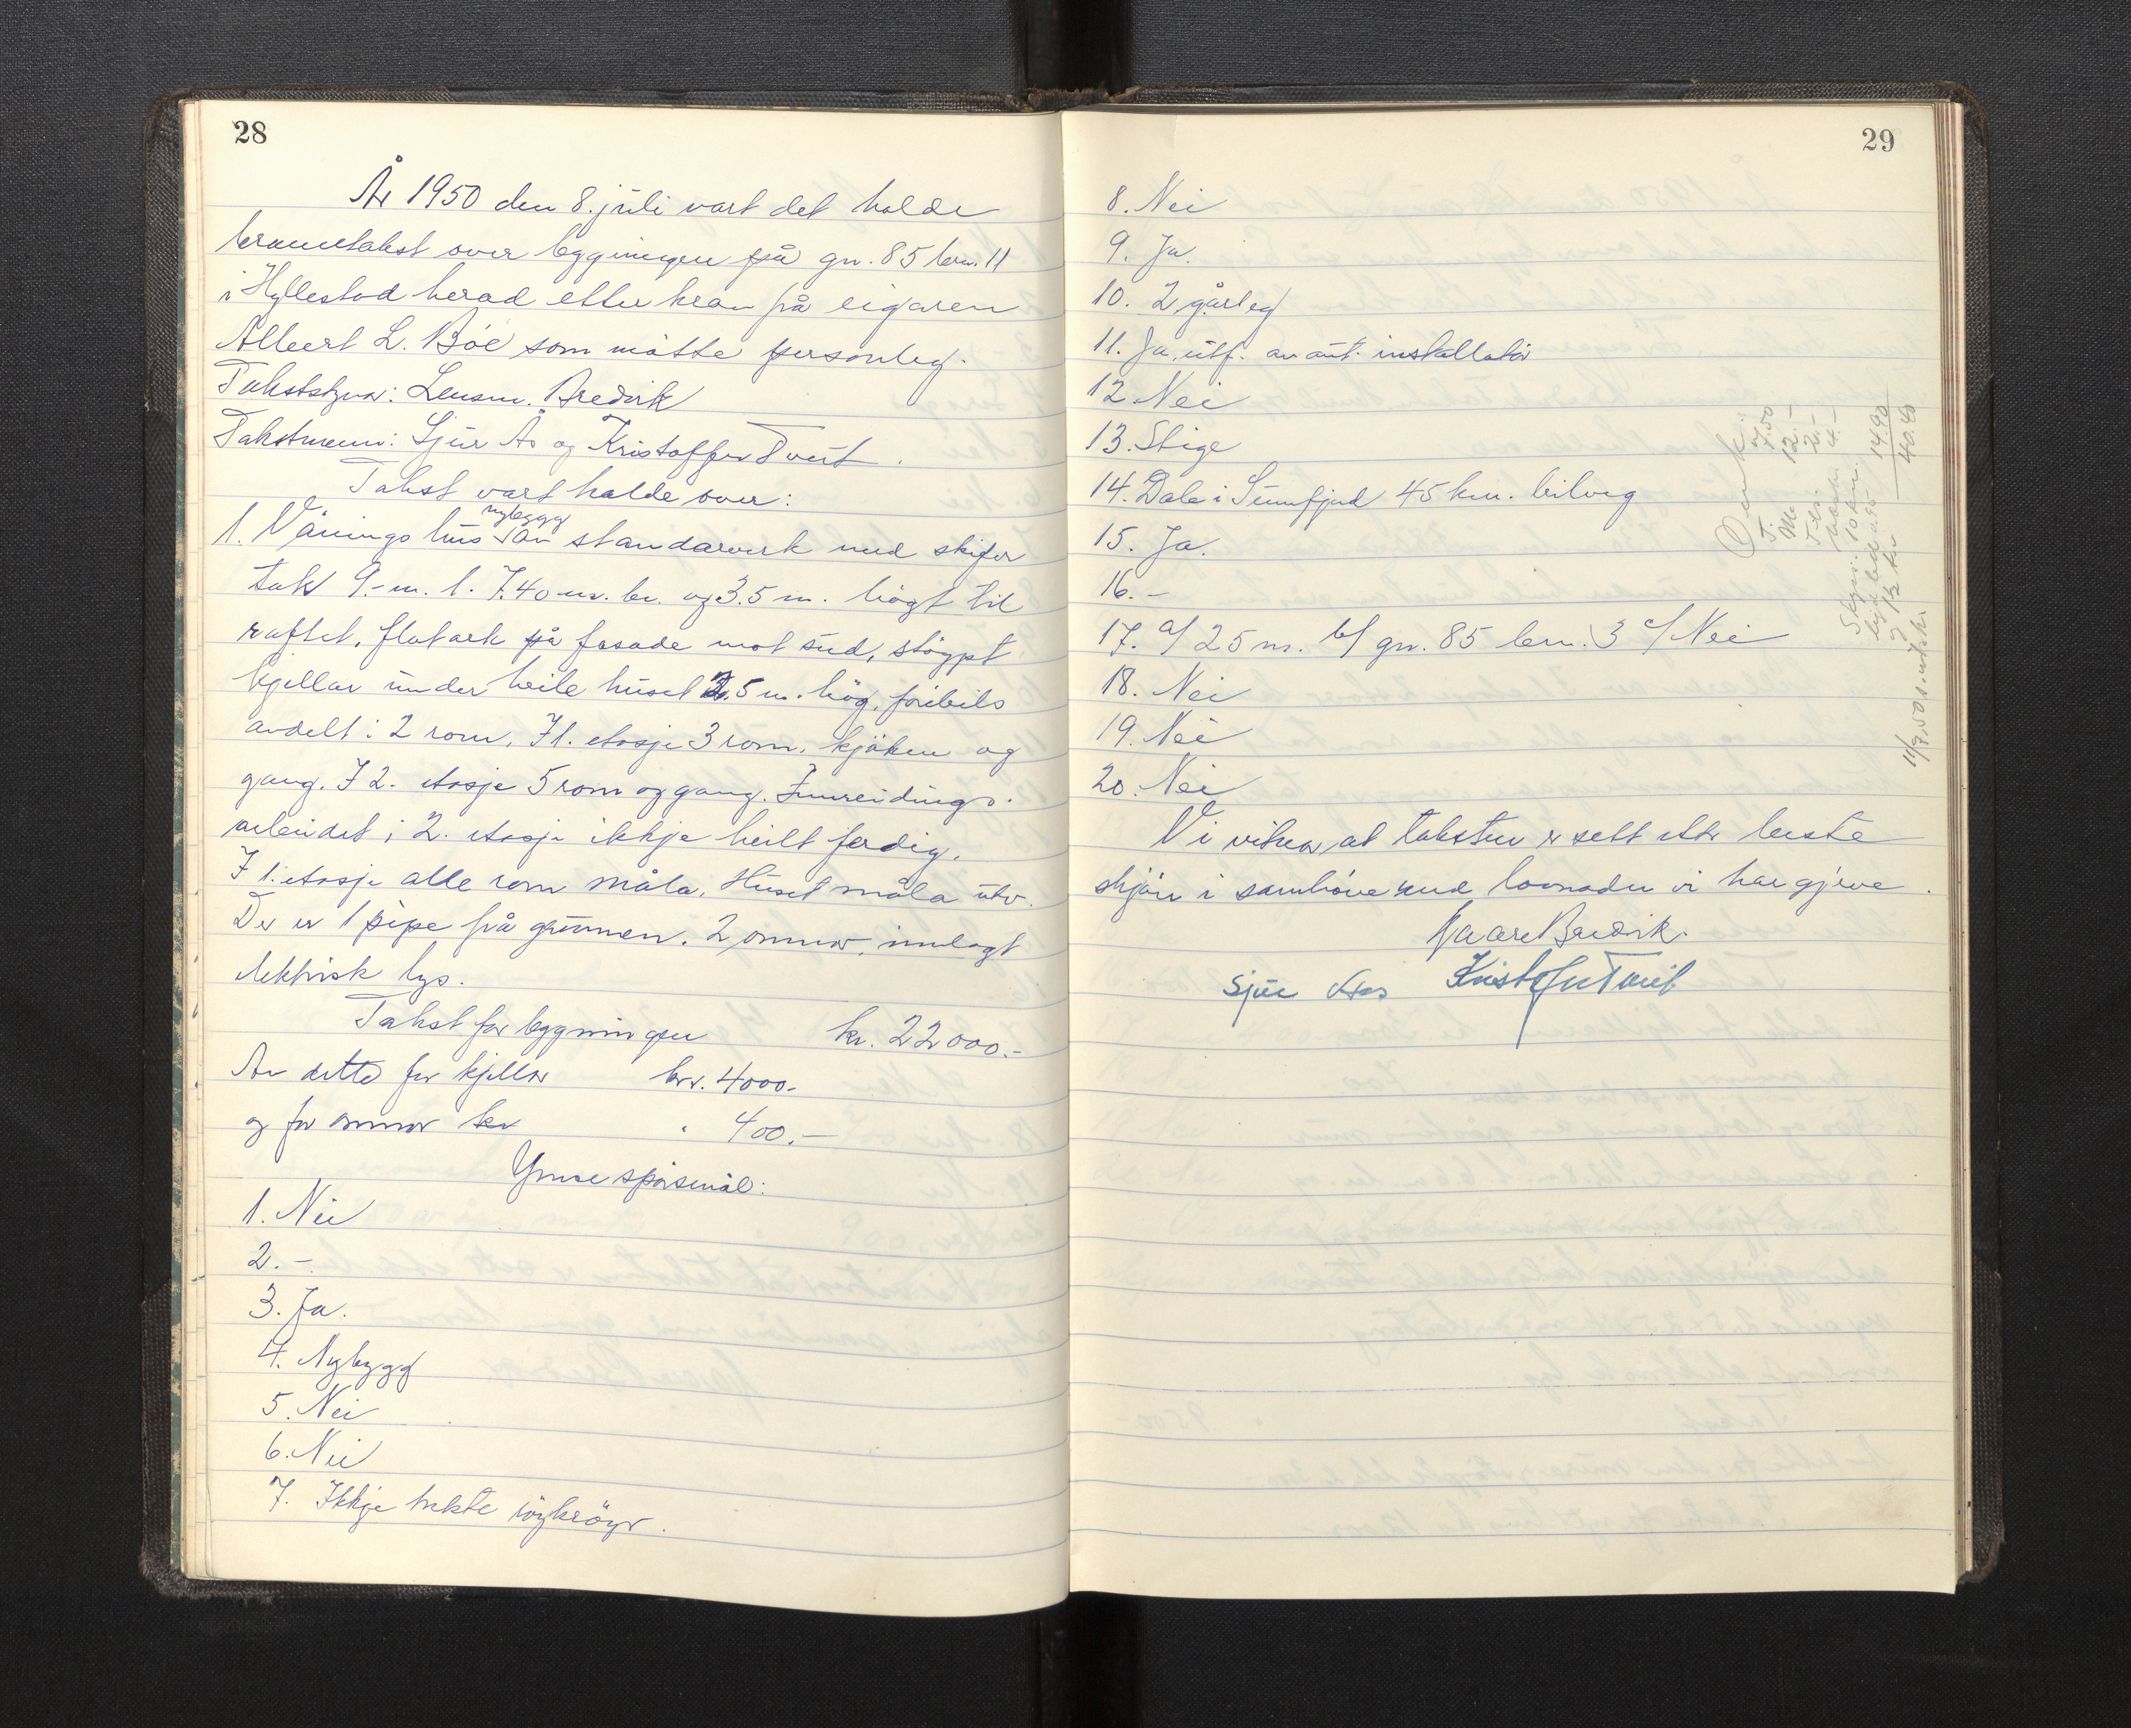 28
År 1950 den 8. júli vart det halde
branntakst over bygningen på gn. 85 brn. 11
i Hyllestad herad etter krav frå eigaren
Albert L. Böe som møtte personleg.
Takststyrar: Lensm. Bredvik
Takstmenn: Sjur Ås og Kristoffer Tveit.
Takst vart halde over:
nybygg
1. Våningshus av standarverk med skifer
tak 9.- m. l. 7.40 m. br. og 3.5 m. högt til
raftet, flatark på fasade mot sud, støypt
kjellar under heile huset 2.5 m. høg, förebils
avdelt i 2 rom. I 1. etasje 3 rom, kjöken og
gang. I 2. etasje 5 rom og gang. Innreidings-
arbeidet i 2. etasje ikkje heilt ferdig.
I 1. etasje alle rom måla. Huset måla utv.
Der er 1 pipe frå grunnen. 2 omnar, innlagt
elektrisk lys.
Takst for bygningen kr. 22000.-
Av dette for kjellar kr. 4000.-
og for omnar kr " 400.-
Ymse spörsmål:
1. Nei
2. -
3. Ja.
4. Nybygg
5. Nei
6. Nei
7. Ikkje trekte röykröyr.
29
8. Nei
9. Ja.
10. 2 gårleg
11. Ja, utf. av aut. installatör
12. Nei
13. Stige
14. Dale i Sunnfjord 45 km. bilveg
15. Ja.
16. -
17. a/ 25 m. b/ gn. 85 brn. 3 c/ Nei
18. Nei
19. Nei
20. Nei
Vi vitnar at taksten er sett etter beste
skjön i samhöve med lovnaden vi har gjeve.
Kaare Bredvik.
Sjur Aas Kristoffer Tveit
7.50
12.-
2.-
4.-
Skyss: 10 km.
14.90
40.40